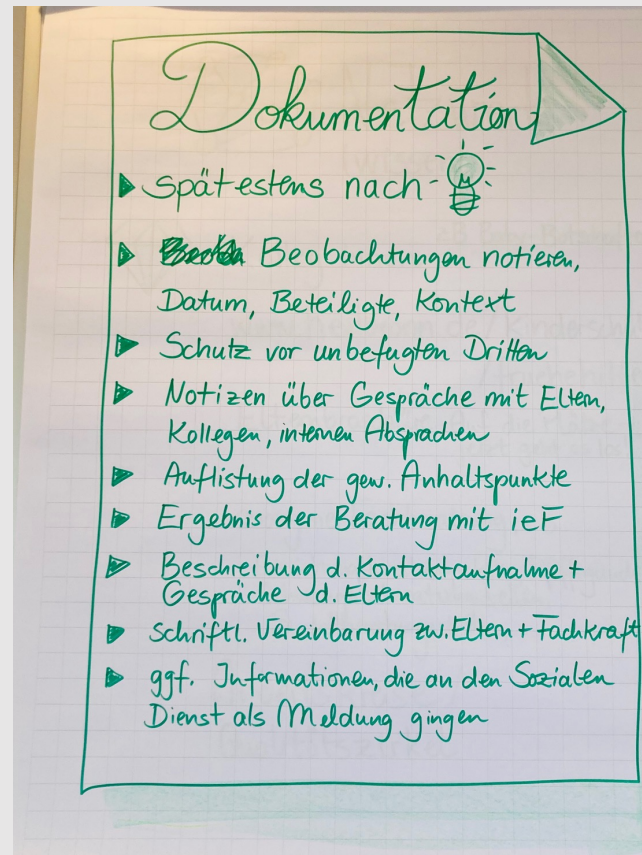 Dokumentation
spätestens nach
Beobachtungen notieren,
Datum, Beteiligte, Kontext
Schutz vor unbefugten Dritten
Notizen über Gespräche mit Eltern,
Kollegen, internen Absprachen
Auflistung der gew. Anhaltspunkte
Ergebnis der Beratung mit ieF
Beschreibung d. Kontaktaufnahme +
Gespräche d. Eltern
Schriftl. Vereinbarung zw. Eltern + Fachkraft
ggf. Informationen, die an den Sozialen
Dienst als Meldung gingen